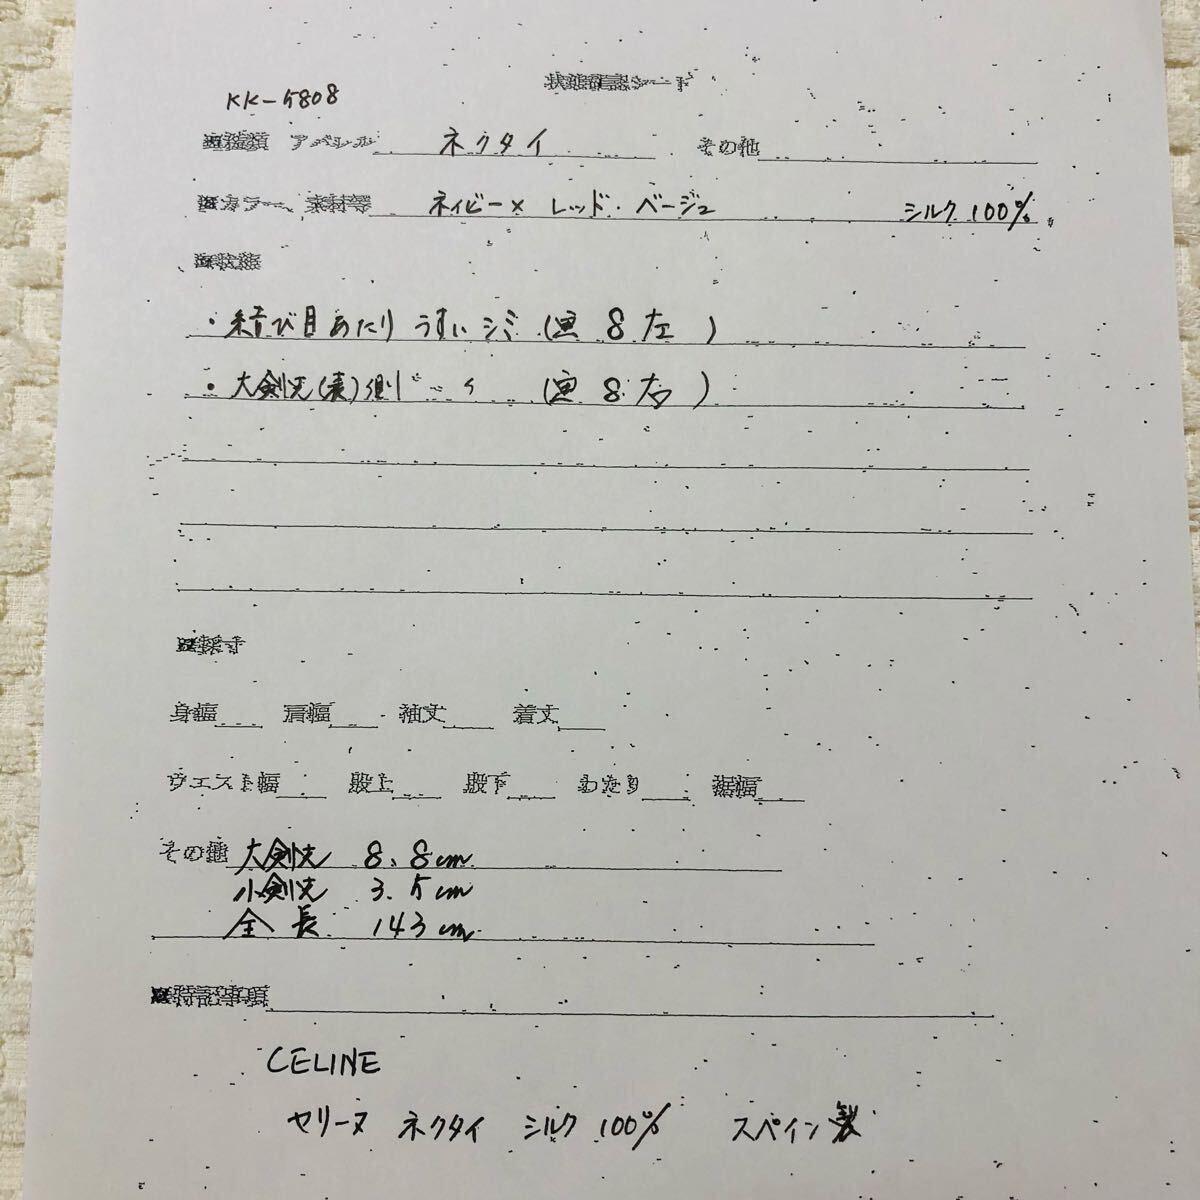 状態確認シート
KK-5808
種類 アパレル ネクタイ その他
カラー、素材等 ネイビー× レッド・ベージュ シルク 100%
状態
・結び目あたり うすいシミ (画 8 左 )
・大剣先(裏)側 (画 8. 右 )
採寸
身幅 肩幅 袖丈 着丈
ウエスト幅 股上 股下 わたり 裾幅
その他 大剣先 8.8cm
小剣先 3.5cm
全長 143cm
特記事項
CELINE
セリーヌ ネクタイ シルク 100% スペイン製